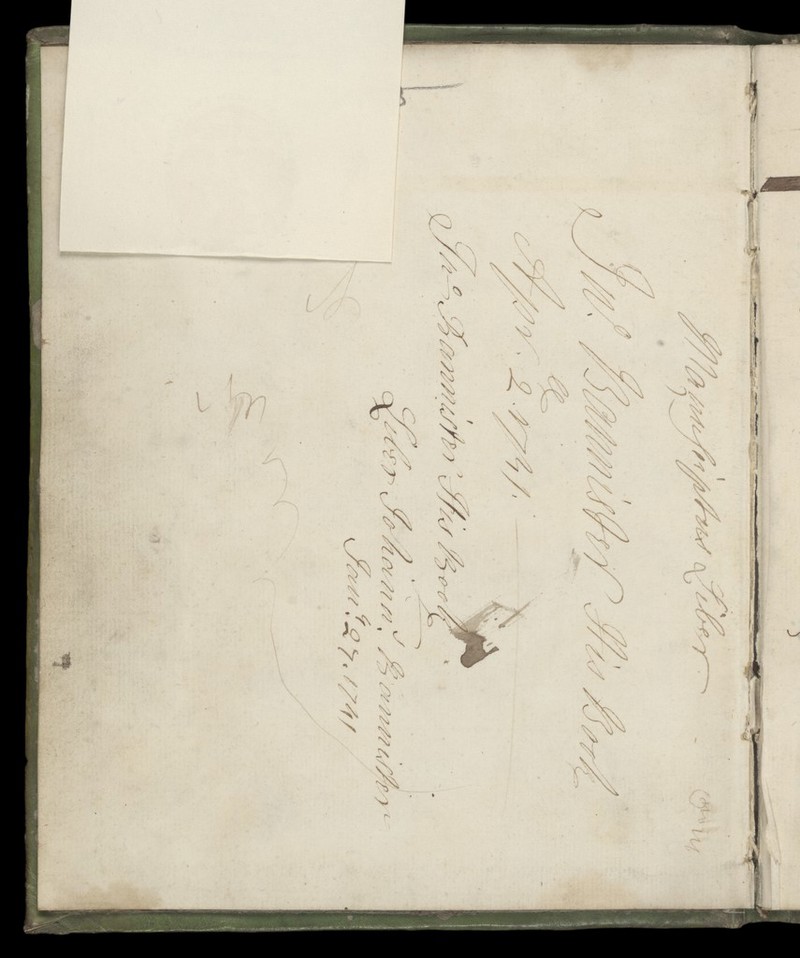 Manuscriptus Liber
Jno. Bannister His Book
Apr. 2. 1741.
Jno Bannister His Book
Liber Johann.s Bannister
Jan.y 27. 1741